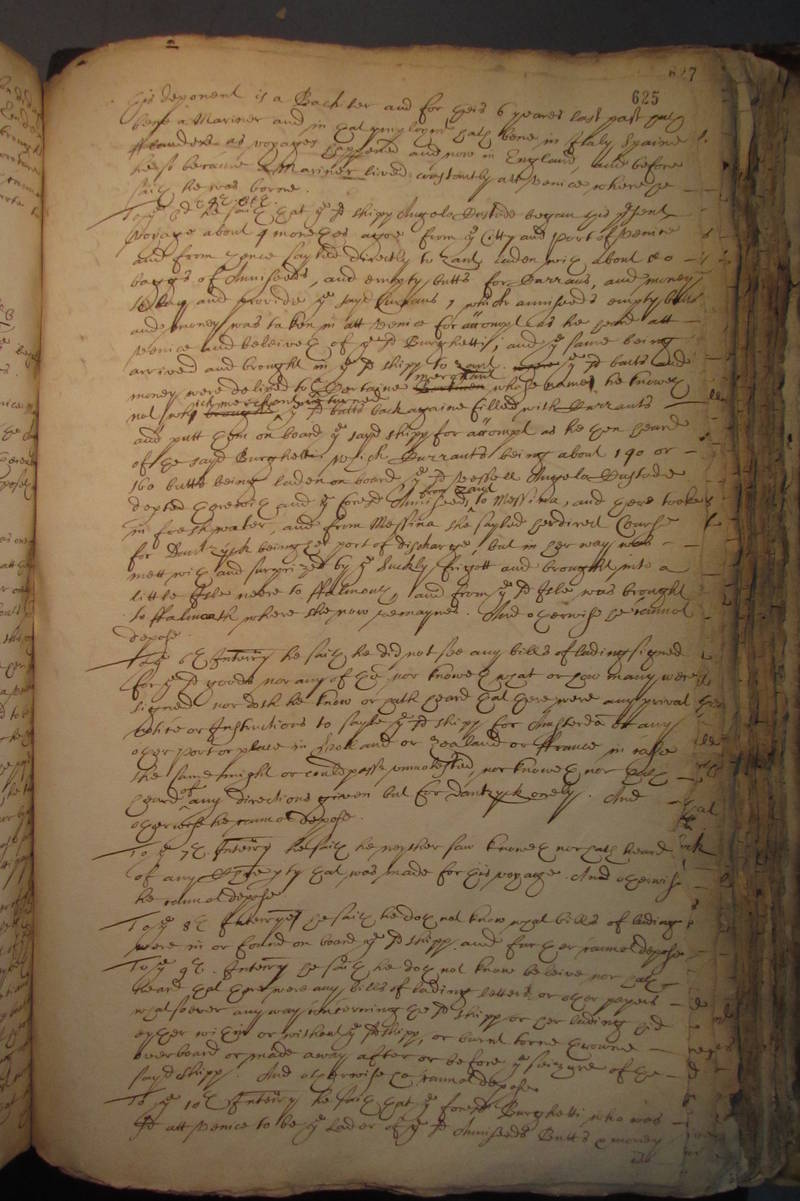 627
625
his deponent is a Bachler and for theis 6 yeares last past hath
bene a Mariner and in that imploym.t hath bene in Italy Spaine
fflanders as voyages happened and now in England, and before
heeso became a Mariner lived constantly att Venice where he
saith he was borne.
To y.e 5.th he saith that y.e s.d shipp Angelo Custode began his p̄sent
voyage about 4 monethes agoe from y.e Citty and Port of Venice
and from thence sayled directly to Zant laden with about
baggs of Anniseeds, and empty butts for Currans, and money
to buy and provide y.e sayd Currans, which anniseeds empty butts
and money was taken in att Venice for accompt as he heard att
Venice and beleiveth of y.e s.d Burghetti, and y.e same being
arrived and brought in y.e s.d shipp to Zant y.e s.d butts and
money were deliv.ed to a Certaine merchant whose name he knoweth
not w.ch merchant returned y.e s.d butts back againe filled with Currants
and putt them on board y.e sayd shipp for accompt as he then heard
of the sayd Burghetti which Currants being about 140 or
160 butts being laden on board y.e s.d vessell Angelo Custode
depted therewith and y.e fores.d Anniseeds from Zant to Messina, and there tooke
in fresh water, and from Messina she sayled her direct Course
for Dantzyck being her port of discharge, but in her way was
mett with and surprized by y.e Suckly frigott and brought into a
little Isle neere to ffalmouth, and from y.e s.d Isle was brought
to ffalmouth where she now remaynes. And otherwise he cannot
depose.
To y.e 6.th Interry he saith he did not see any bills of lading signed
for y.e s.d goods nor any of them nor knoweth what or how many were
signed nor doth he know or hath heard that there were any privat
notice or Instructions to sayle y.e s.d shipp for Amsterdā or any
other port or place in Holland or Zealand or ffrance in case
she same might or could passe unmolested, nor knoweth nor hath
heard of any directions given but for Dantzyck onely. And
otherwise he cannot depose.
To y.e 7.th Interry he saith he neyther saw knoweth nor hath heard
of any Charter pty that was made for this voyage. And otherwise
he cannot depose
To y.e 8.th Interry he saith he doth not know what bills of lading
were in or found on board y.e s.d shipp. and further cannot depose
To y.e 9.th Interry he saith he doth not know beleive nor hath
heard that there were any bills of lading letters or other papers
whatsoever any way concerning the s.d shipp or her lading hid
eyther within or without y.e s.d shipp, or burnt torne throwne
overboard or made away after or before y.e seizure of the
sayd shipp. And otherwise he cannot depose.
To y.e 10.th Interry he saith that y.e fores.d Burghetti who was
s.d att Venice to be y.e Lader of y.e s.d Anniseeds Butts & money